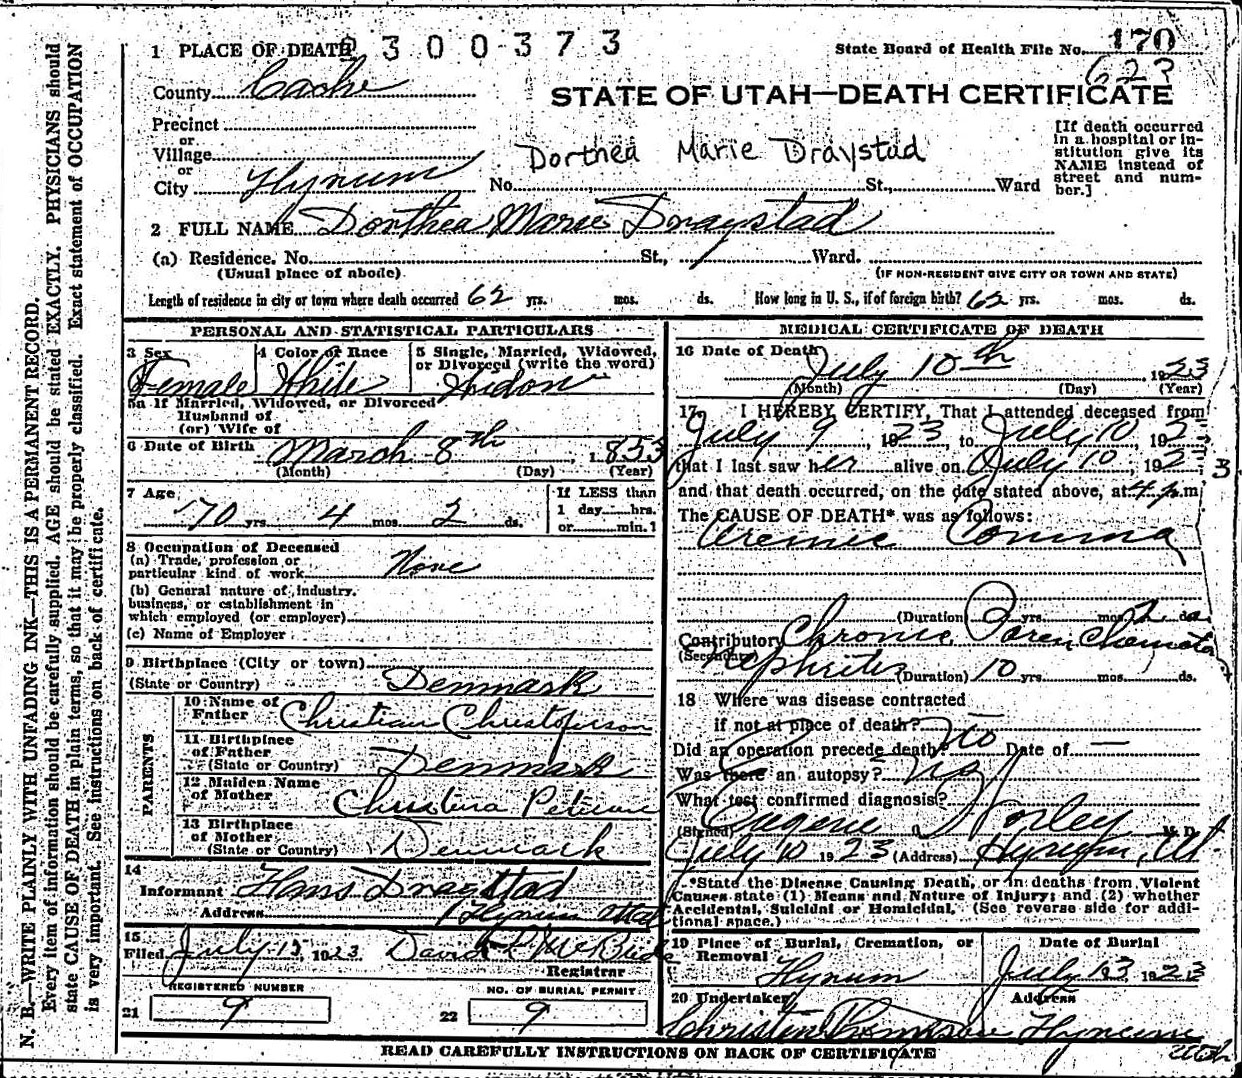 1 PLACE OF DEATH 2300373
State Board of Health File No. 170
623
County Cache
STATE OF UTAH—DEATH CERTIFICATE
Precinct
or
Village
or
City Hyrum
Dorthea Marie Draystad
No. St., Ward
[If death occurred
in a hospital or in-
stitution give its
NAME instead of
street and num-
ber.]
2 FULL NAME Dorthea Marie Draystad
(a) Residence. No. St., Ward.
(Usual place of abode)
(IF NON-RESIDENT GIVE CITY OR TOWN AND STATE)
Length of residence in city or town where death occurred 62 yrs. mos. ds. How long in U. S., if of foreign birth? 62 yrs. mos. ds.
PERSONAL AND STATISTICAL PARTICULARS
3 Sex
Female
4 Color or Race
White
5 Single, Married, Widowed,
or Divorced (write the word)
Widow
5a If Married, Widowed, or Divorced
Husband of
(or) Wife of
6 Date of Birth March 8th, 1853
(Month) (Day) (Year)
7 Age
70 yrs 4 mos 2 ds.
If LESS than
1 day hrs.
or min.
8 Occupation of Deceased
(a) Trade, profession or
particular kind of work None
(b) General nature of industry,
business, or establishment in
which employed (or employer)
(c) Name of Employer
9 Birthplace (City or town)
(State or Country) Denmark
PARENTS
10 Name of
Father Christian Christoferson
11 Birthplace
of Father
(State or Country) Denmark
12 Maiden Name
of Mother Christina
13 Birthplace
of Mother
(State or Country) Denmark
14
Informant Hans Draystad
Address Hyrum Utah
15
Filed July 13, 1923 David McBride
Registrar
REGISTERED NUMBER
21 9
NO. OF BURIAL PERMIT
22 9
MEDICAL CERTIFICATE OF DEATH
16 Date of Death
July 10th 1923
(Month) (Day) (Year)
17. I HEREBY CERTIFY, That I attended deceased from
July 9, 1923 to July 10, 192
that I last saw her alive on July 10, 192 3
and that death occurred, on the date stated above, at 4 p.m
The CAUSE OF DEATH* was as follows:
Uremic Comma
(Duration) yrs. mos 2 ds
Contributory Chronic Parenchemeto
(Secondary)
Nephrites (Duration) 10 yrs. mos. ds.
18 Where was disease contracted
if not at place of death?
Did an operation precede death? No Date of —
Was there an autopsy? No
What test confirmed diagnosis?
(Signed) Eugene Worley M. D.
July 10 1923 (Address) Hyrum, Ut
*State the Disease Causing Death, or in deaths from Violent
Causes state (1) Means and Nature of Injury; and (2) whether
Accidental, Suicidal or Homicidal. (See reverse side for addi-
tional space.)
19 Place of Burial, Cremation, or
Removal
Hyrum
Date of Burial
July 13 1923
20 Undertaker
Address
Christen Thompson Hyrum
Utah
READ CAREFULLY INSTRUCTIONS ON BACK OF CERTIFICATE
N. B.—WRITE PLAINLY WITH UNFADING INK—THIS IS A PERMANENT RECORD.
Every item of information should be carefully supplied. AGE should be stated EXACTLY. PHYSICIANS should
state CAUSE OF DEATH in plain terms, so that it may be properly classified. Exact statement of OCCUPATION
is very important. See instructions on back of certificate.